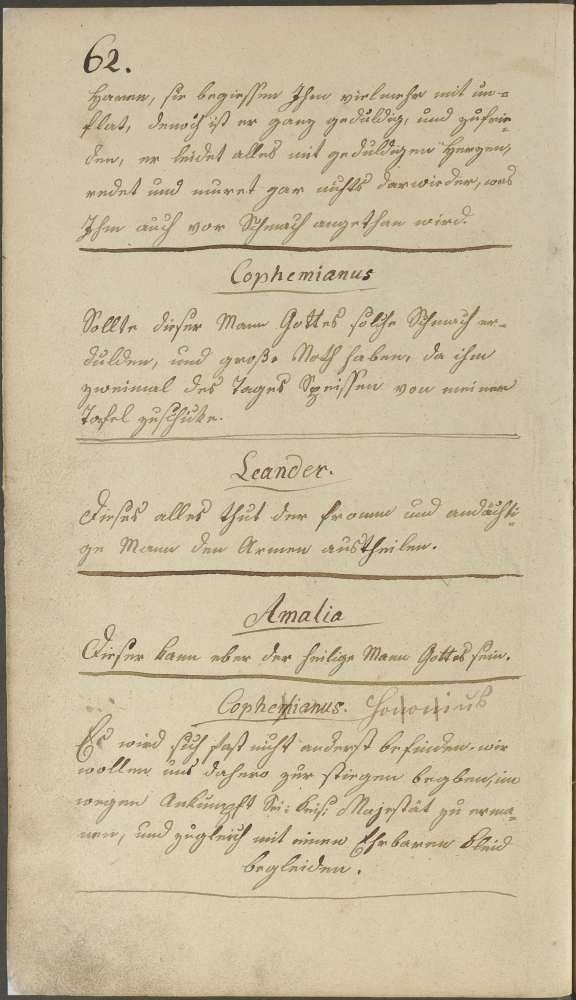 62.
Haren, sie begiessen Ihm vielmehr mit un=
flat, denoch ist er ganz geduldig, und zufrie=
den, er leidet alles mit geduldigen Herzen,
redet und muret gar nichts darwieder, was
Ihm auch vor Schmach angethan wird.
Cophemianus
Sollte dieser Mann Gottes solche Schmach er=
dulden, und große Noth haben, da ihm
zweimal des Tages Speissen von meiner
Tafel zuschicke.
Leander.
Dieses alles thut der fromm und andächti=
ge Mann den Armen austheilen.
Amalia
Dieser kann eber der heilige Mann Gottes sein.
Cophemianus. Honorius
Es wird sich fast nicht anderst befinden. wir
wollen uns dahero zur stiegen begben, im
wegen Ankunpft Sei: keis: Majestät zu erma=
nen, und zugleich mit einen Ehrbaren Kleid
begleiden.